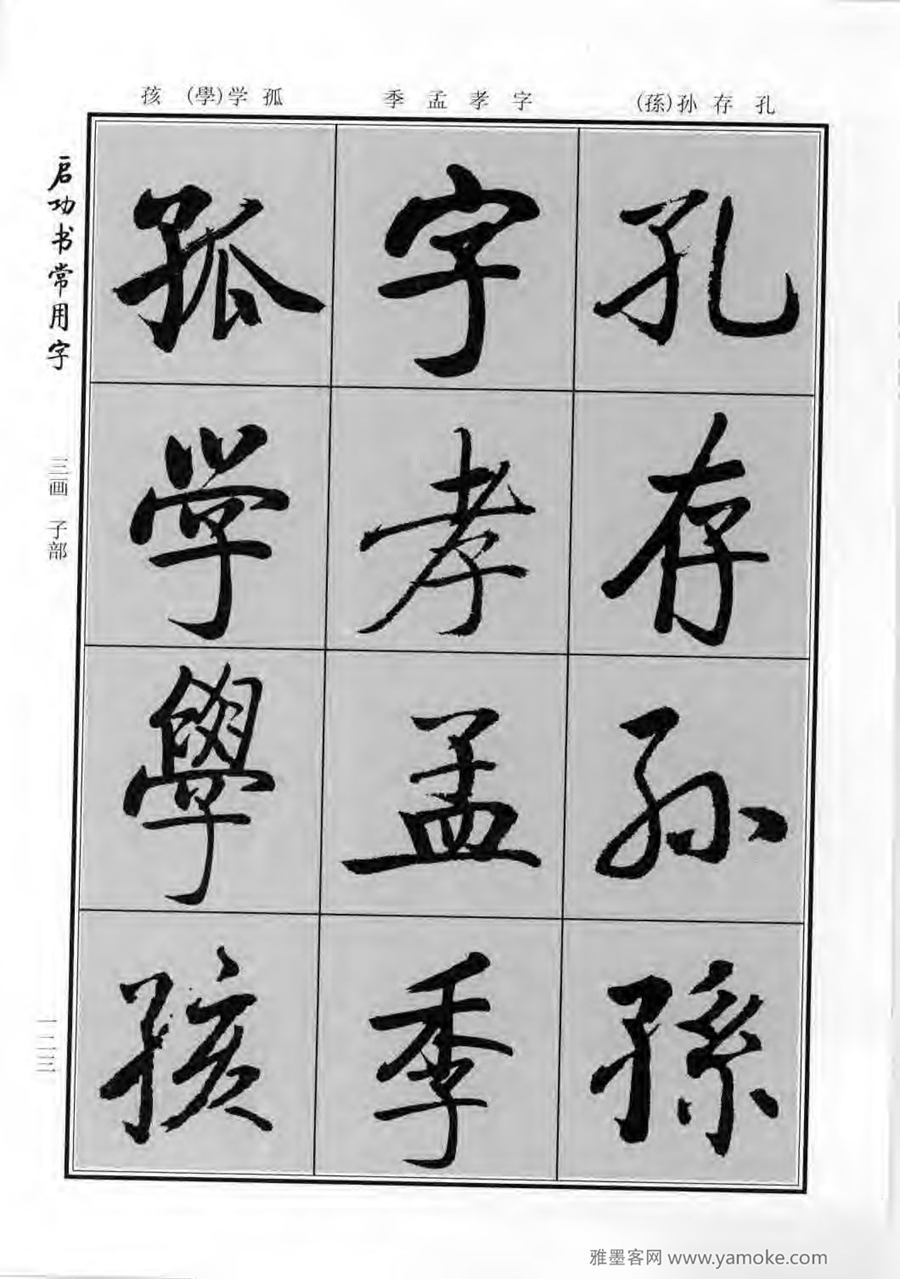 孩 (學)学 孤
季 孟 孝 字
(孫)孙 存 孔
启功书常用字
三画 子部
一二三
孔
存
孙
孫
字
孝
孟
季
孤
学
學
孩
雅墨客网 www.yamoke.com